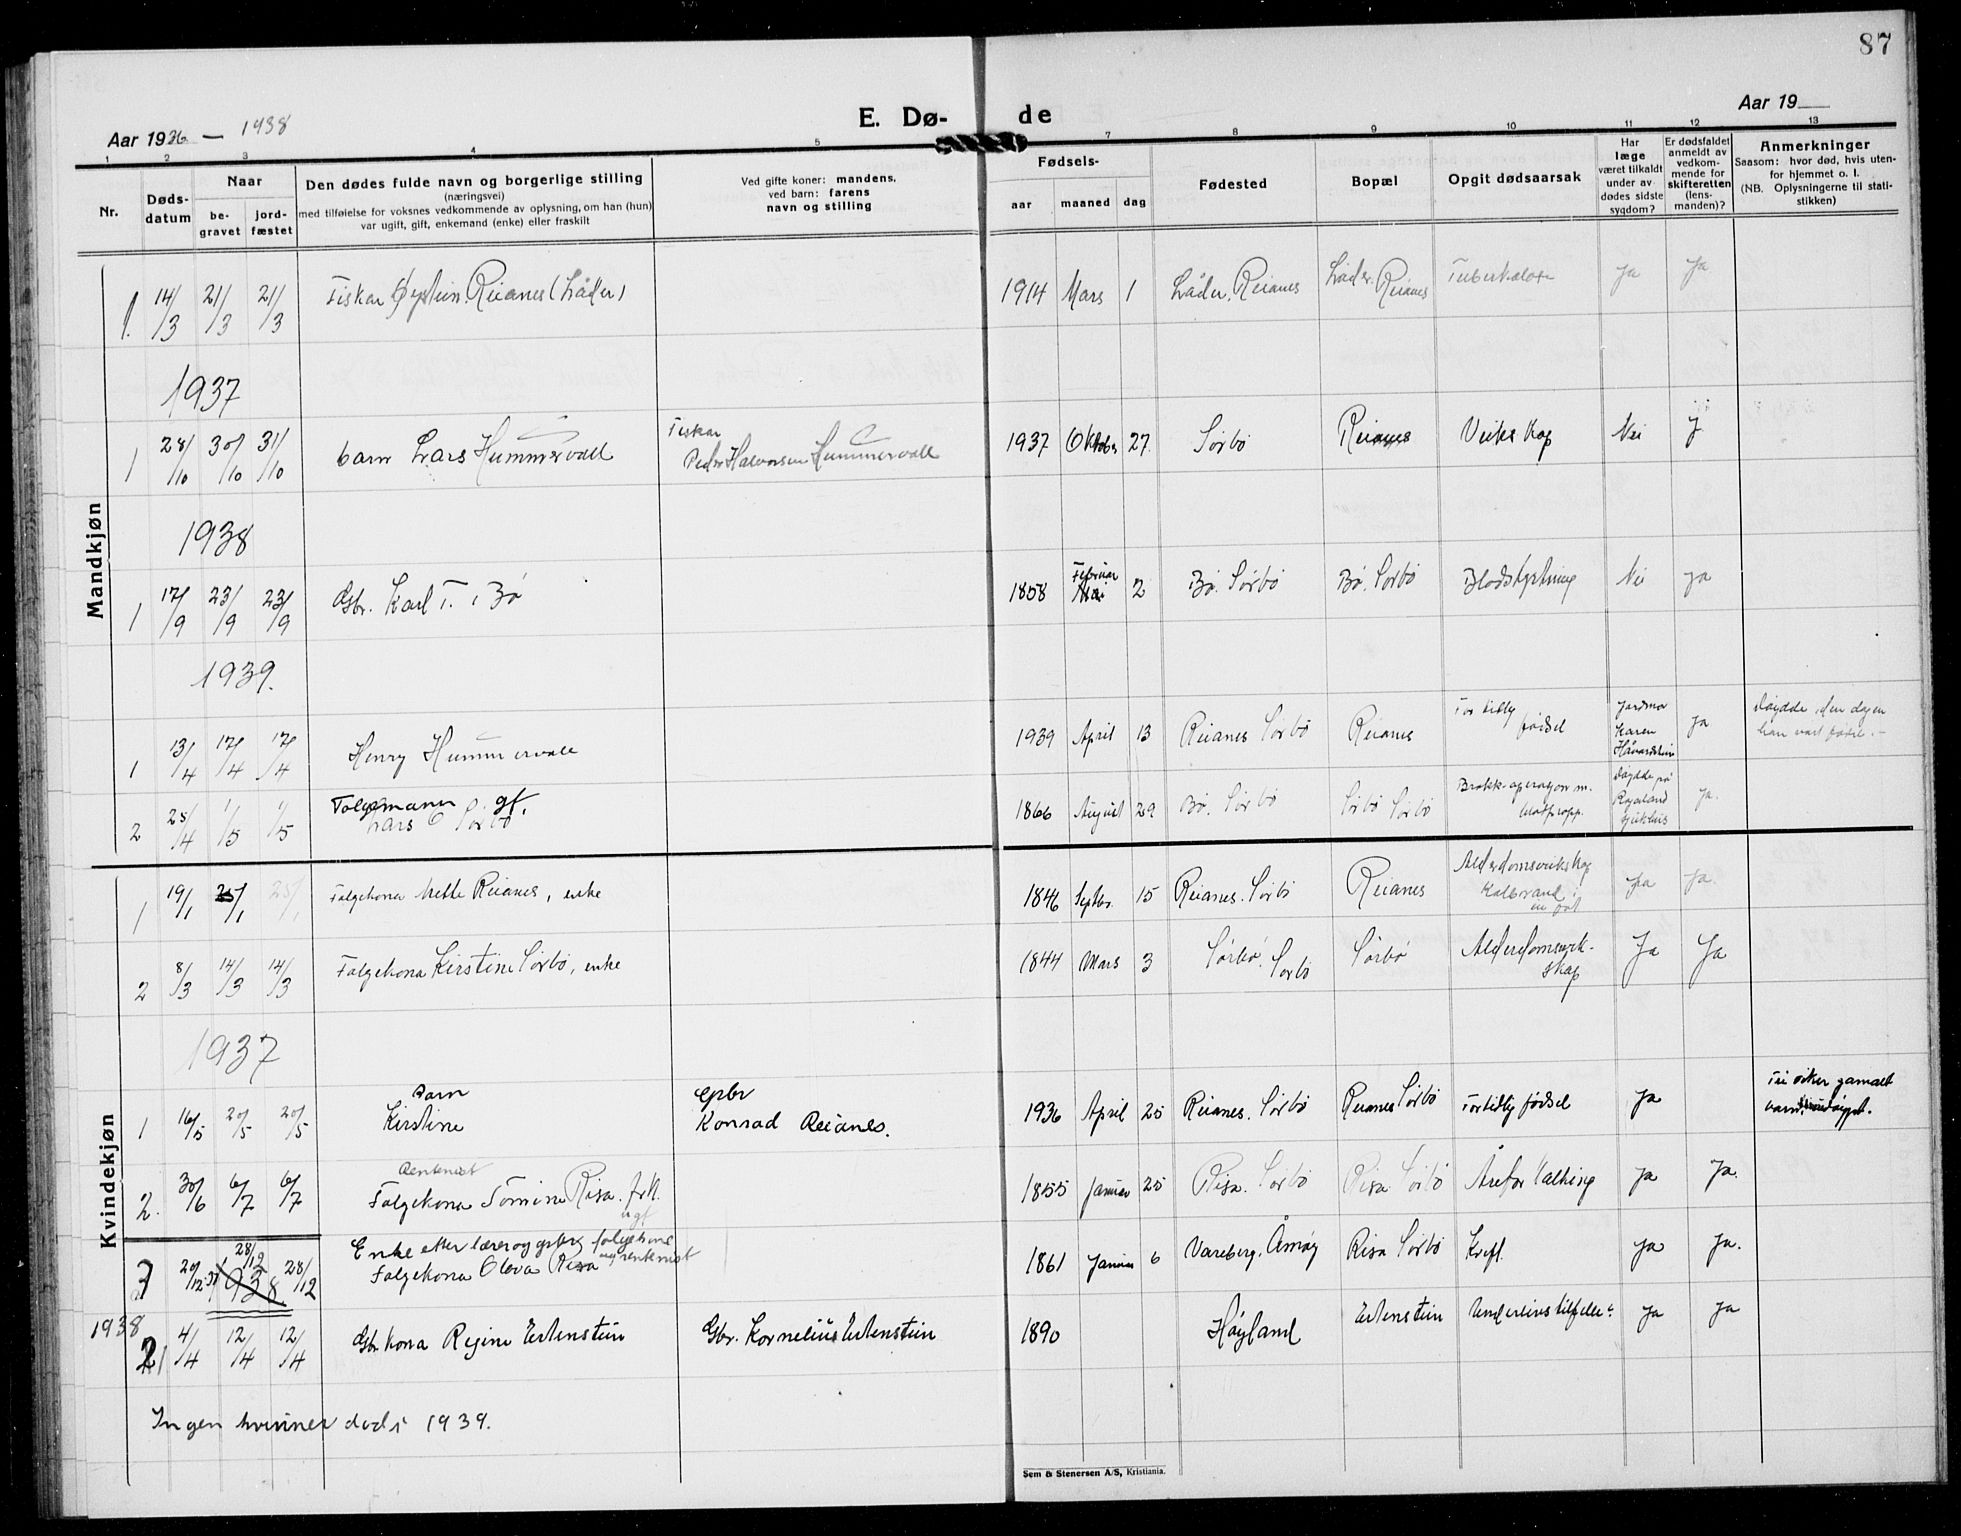 87
Aar 1936 — 1938
E. Dø-
de
Aar 19
1 2 3 4 5 7 8 9 10 11 12 13
Nr.
Døds-
datum
Naar
be-
gravet
jord-
fæstet
Den dødes fulde navn og borgerlige stilling
(næringsvei)
med tilføielse for voksnes vedkommende av oplysning, om han (hun)
var ugift, gift, enkemand (enke) eller fraskilt
Ved gifte koner: mandens.
ved barn: farens
navn og stilling
Fødsels-
aar
maaned
dag
Fødested
Bopæl
Opgit dødsaarsak
Har
læge
været tilkaldt
under av
dødes sidste
sygdom?
Er dødsfaldet
anmeldt av
vedkom-
mende for
skifteretten
(lens-
manden)?
Anmerkninger
Saasom: hvor død, hvis uten-
for hjemmet o. l.
(NB. Oplysningerne til stati-
stikken)
Mandkjøn
1. 14/3 21/3 21/3 Fiskar Øystein Reianes (Låder) 1914 Mars 1 Låder, Reianes Låder. Reianes Tuberkulose Ja Ja
1937
1 28/10 30/10 31/10 barn Lars Hummervoll Fiskar
Peder Halvorsen Hummervoll 1937 Oktober 27. Sørbø Reianes Veikskap Nei J
1938
1 17/9 23/9 23/9 Gbr. Karl T. Bø 1858 Februar 2 Bø. Sørbø Bø. Sørbø Blodstyrtning Nei ja
1939.
1 13/4 17/4 17/4 Henry Hummervoll 1939 April 13 Reianes Sørbø Reianes For tidlig fødsel Jordmor
Karen
Håvardstein ja Døydde den dagen
han vart fødd. –
2 25/4 1/5 1/5 Folgemann gf.
Lars O. Sørbø 1866 August 29 Bø. Sørbø Sørbø Sørbø Brokk-operasjon m.
blodpropp. Døydde på
Rogaland
sjukehus ja.
Kvindekjøn
1 19/1 25/1 25/1 Folgekona Mette Reianes, enke 1846 Septbr. 15 Reianes. Sørbø Reianes Alderdomsveikskap
Kolbrand i
ein fot Ja Ja.
2 8/3 14/3 14/3 Folgekona Kirstine Sørbø, enke 1844 Mars 3 Sørbø. Sørbø Sørbø Alderdomsveik-
skap Ja Ja
1937
1 16/5 20/5 20/5 Barn
Kirstine Gbr
Konrad Reianes. 1936 April 25 Reianes. Sørbø Reianes Sørbø Fortidlig fødsel Ja Tri viker gamalt
barn.
2. 30/6 6/7 6/7 Rentenist
Folgekona Tomine Risa. frk.
ugf 1855 Januar 25 Risa. Sørbø Risa Sørbø Åreforkalking Ja Ja.
3 20/12 37 28/12 1938 28/12 Enke etter lærer og gbr folgekone
og rentenist
Folgekona Oleva Risa 1861 Januar 6 Vareberg. Åmøy Risa Sørbø Kreft. Ja Ja.
1938
2 1 4/4 12/4 12/4 Gbrkona Regine Estenstein Gbr. Kornelius Estenstein 1890 Høyland Estenstein Underlivstilfelle Ja Ja
Ingen kvinner død i 1939.
Sem & Stenersen A/S, Kristiania.